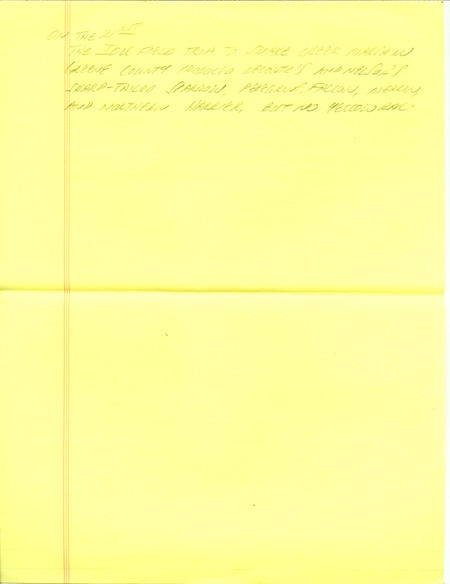 ON THE 21ST
THE IOU FIELD TRIP TO SNAKE CREEK MARSH IN
GREENE COUNTY PRODUCED LECONTE'S AND NELSON'S
SHARP-TAILED SPARROW, PEREGRINE FALCON, MERLIN,
AND NORTHERN HARRIER, BUT NO YELLOW RAIL.